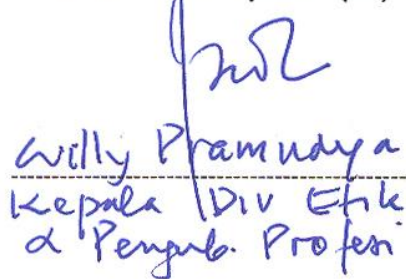 Willy Pramudya
Kepala Div Etik
& Pengemb. Profesi